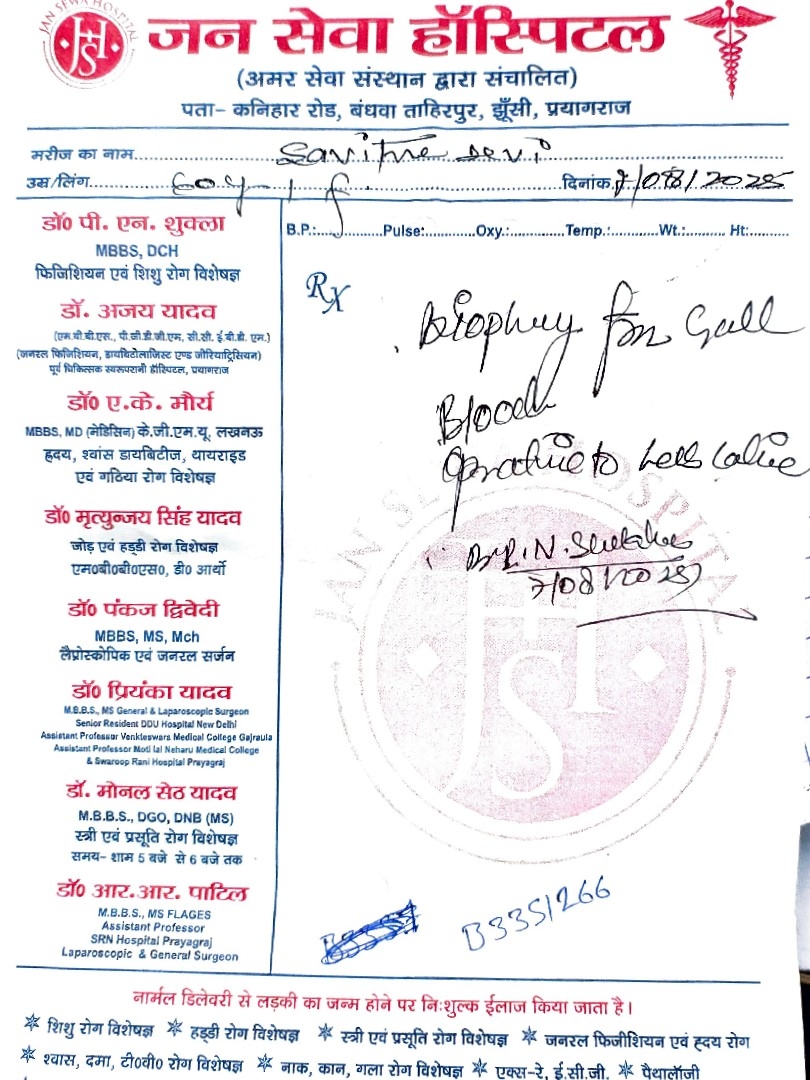 JAN SEWA HOSPITAL
जन सेवा हॉस्पिटल
(अमर सेवा संस्थान द्वारा संचालित)
पता- कनिहार रोड, बंधवा ताहिरपुर, झूँसी, प्रयागराज
मरीज का नाम
उम्र/लिंग 60 y / f. दिनांक 7/08/2025
डॉ0 पी. एन. शुक्ला
MBBS, DCH
फिजिशियन एवं शिशु रोग विशेषज्ञ
डॉ. अजय यादव
(एम.बी.बी.एस., पी.जी.डी.जी.एम, सी.सी. ई.बी.डी. एम.)
(जनरल फिजिशियन, डायबिटोलाजिस्ट एण्ड जीरियाट्रिसियन)
पूर्व चिकित्सक स्वरूपरानी हॉस्पिटल, प्रयागराज
डॉ0 ए.के. मौर्य
MBBS, MD (मेडिसिन) के.जी.एम.यू. लखनऊ
हृदय, श्वांस डायबिटीज, थायराइड
एवं गठिया रोग विशेषज्ञ
डॉ0 मृत्युन्जय सिंह यादव
जोड़ एवं हड्डी रोग विशेषज्ञ
एम0बी0बी0एस0, डी0 आर्थो
डॉ0 पंकज द्विवेदी
MBBS, MS, Mch
लैप्रोस्कोपिक एवं जनरल सर्जन
डॉ0 प्रियंका यादव
M.B.B.S., MS General & Laparoscopic Surgeon
Senior Resident DDU Hospital New Delhi
Assistant Professor Venkteswara Medical College Gajraula
Assistant Professor Moti lal Neharu Medical College
& Swaroop Rani Hospital Prayagraj
डॉ. मोनल सेठ यादव
M.B.B.S., DGO, DNB (MS)
स्त्री एवं प्रसूति रोग विशेषज्ञ
समय- शाम 5 बजे से 6 बजे तक
डॉ0 आर.आर. पाटिल
M.B.B.S., MS FLAGES
Assistant Professor
SRN Hospital Prayagraj
Laparoscopic & General Surgeon
B.P.: Pulse: Oxy.: Temp.: Wt.: Ht:
Rx
for Gall
Blood
to
7/08/2025
B3351266
नार्मल डिलेवरी से लड़की का जन्म होने पर निःशुल्क ईलाज किया जाता है।
शिशु रोग विशेषज्ञ हड्डी रोग विशेषज्ञ स्त्री एवं प्रसूति रोग विशेषज्ञ जनरल फिजीशियन एवं ह्दय रोग
श्वास, दमा, टी0वी0 रोग विशेषज्ञ नाक, कान, गला रोग विशेषज्ञ एक्स-रे, ई.सी.जी. पैथालॉजी